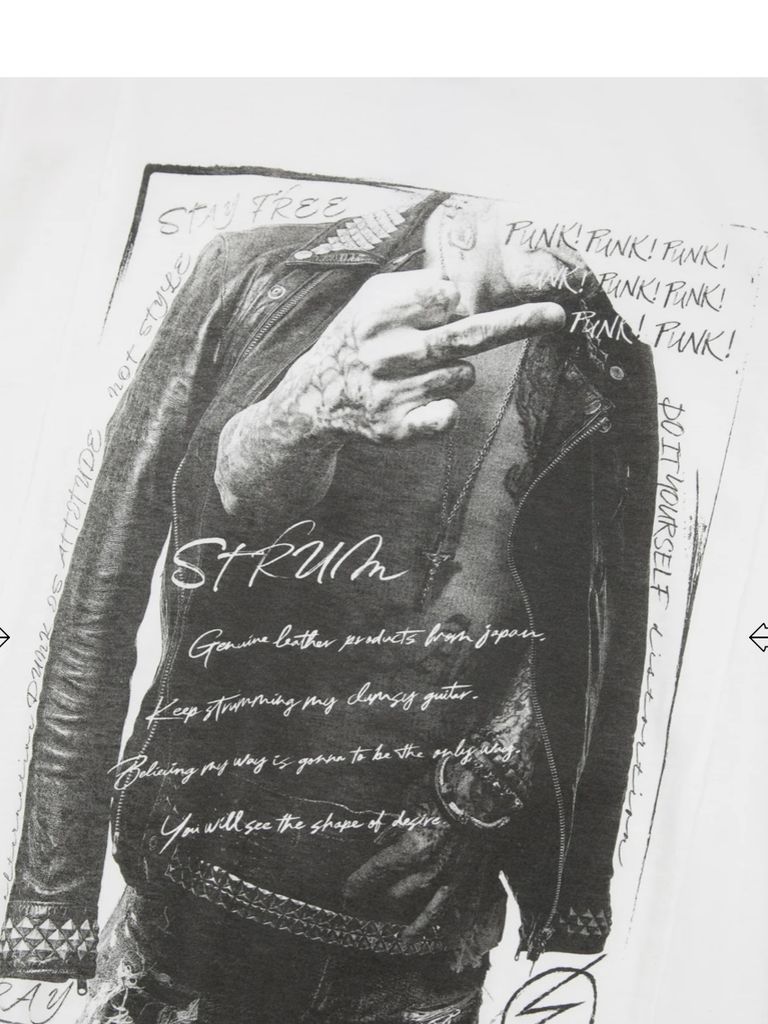 STAY FREE
PUNK! PUNK! PUNK!
PUNK! PUNK! PUNK!
PUNK! PUNK!
PUNK IS ATTITUDE not STYLE
DO IT YOURSELF distortion
STRUM
Genuine leather products from japan.
Keep strumming my clumsy guitar.
Believing my way is gonna to be the only way.
You will see the shape of desire.